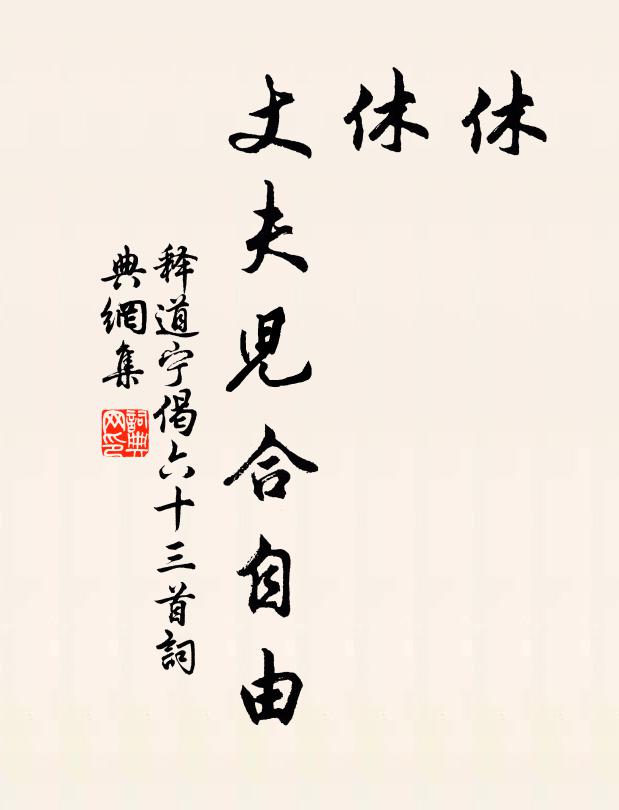 休
休
丈夫児合自由
释道宁偈六十三首詞
典網集
詞典网印